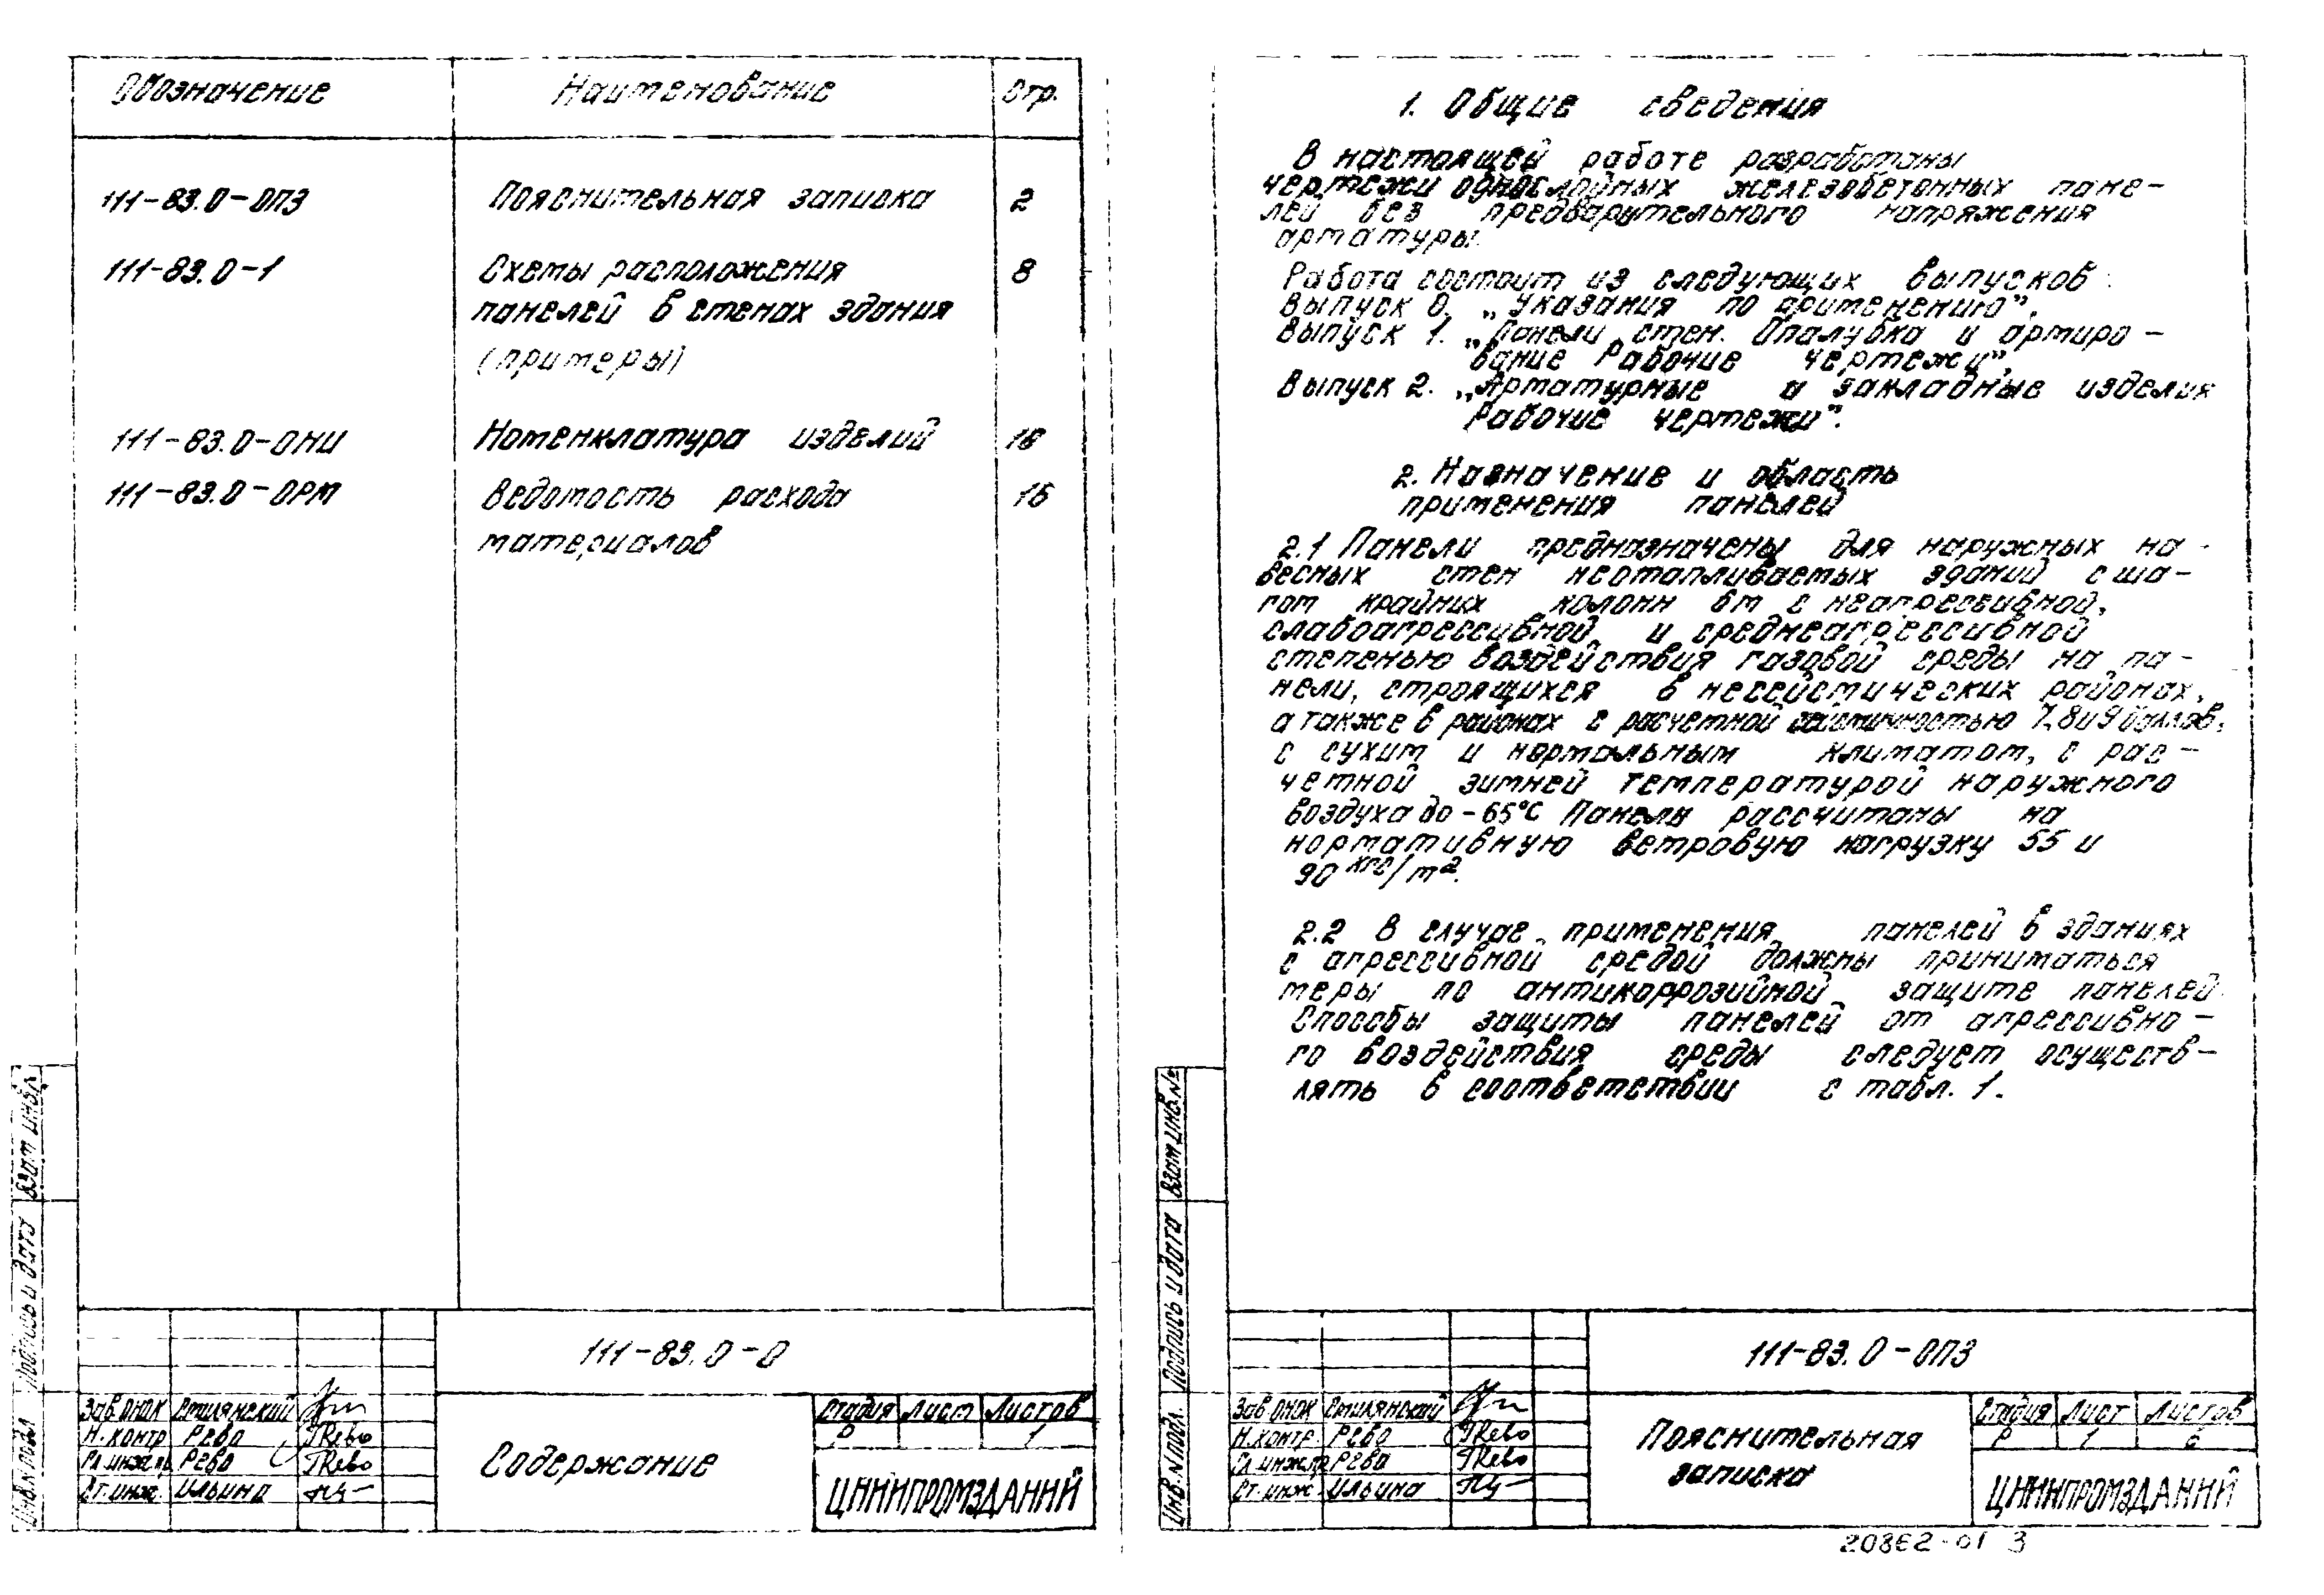 Обозначение Наименование Стр.
111-83.0-0ПЗ Пояснительная записка 2
111-83.0-1 Схемы расположения 8
панелей в стенах здания
(примеры)
111-83.0-0НИ Номенклатура изделий
111-83.0-0РМ Ведомость расхода 15
материалов
Взам инв.
Подпись и дата
Инв.№ подл
111-83.0-0
Зав ОНОК Стилянский
Н.контр Рево
Гл.инж.пр Рево
Ст.инж. Ильина
Содержание
Стадия Лист Листов
Р 1
ЦНИИПРОМЗДАНИЙ
1. Общие сведения
В настоящей работе разработаны
чертежи однослойных железобетонных пане-
лей без предварительного напряжения
арматуры.
Работа состоит из следующих выпусков:
Выпуск 0. „Указания по применению".
Выпуск 1. „Панели стен. Опалубка и армиро-
вание Рабочие чертежи".
Выпуск 2. „Арматурные и закладные изделия
Рабочие чертежи".
2. Назначение и область
применения панелей
2.1 Панели предназначены для наружных на-
весных стен неотапливаемых зданий с ша-
гом крайних колонн 6м с неагрессивной,
слабоагрессивной и среднеагрессивной
степенью воздействия газовой среды на па-
нели, строящихся в несейсмических районах,
а также в районах с расчетной сейсмичностью 7,8 и 9 баллов,
с сухим и нормальным климатом, с рас-
четной зимней температурой наружного
воздуха до -65°С Панели рассчитаны на
нормативную ветровую нагрузку 55 и
90 кгс/м².
2.2 В случае применения панелей в зданиях
с агрессивной средой должны приниматься
меры по антикоррозийной защите панелей.
Способы защиты панелей от агрессивно-
го воздействия среды следует осуществ-
лять в соответствии с табл. 1.
Взам инв.№
Подпись и дата
Инв.№ подл.
111-83.0-0ПЗ
Зав ОНОК Стилянский
Н.контр. Рево
Гл.инж.пр Рево
Ст.инж. Ильина
Пояснительная
записка
Стадия Лист Листов
Р 1 6
ЦНИИПРОМЗДАНИЙ
20862-01 3